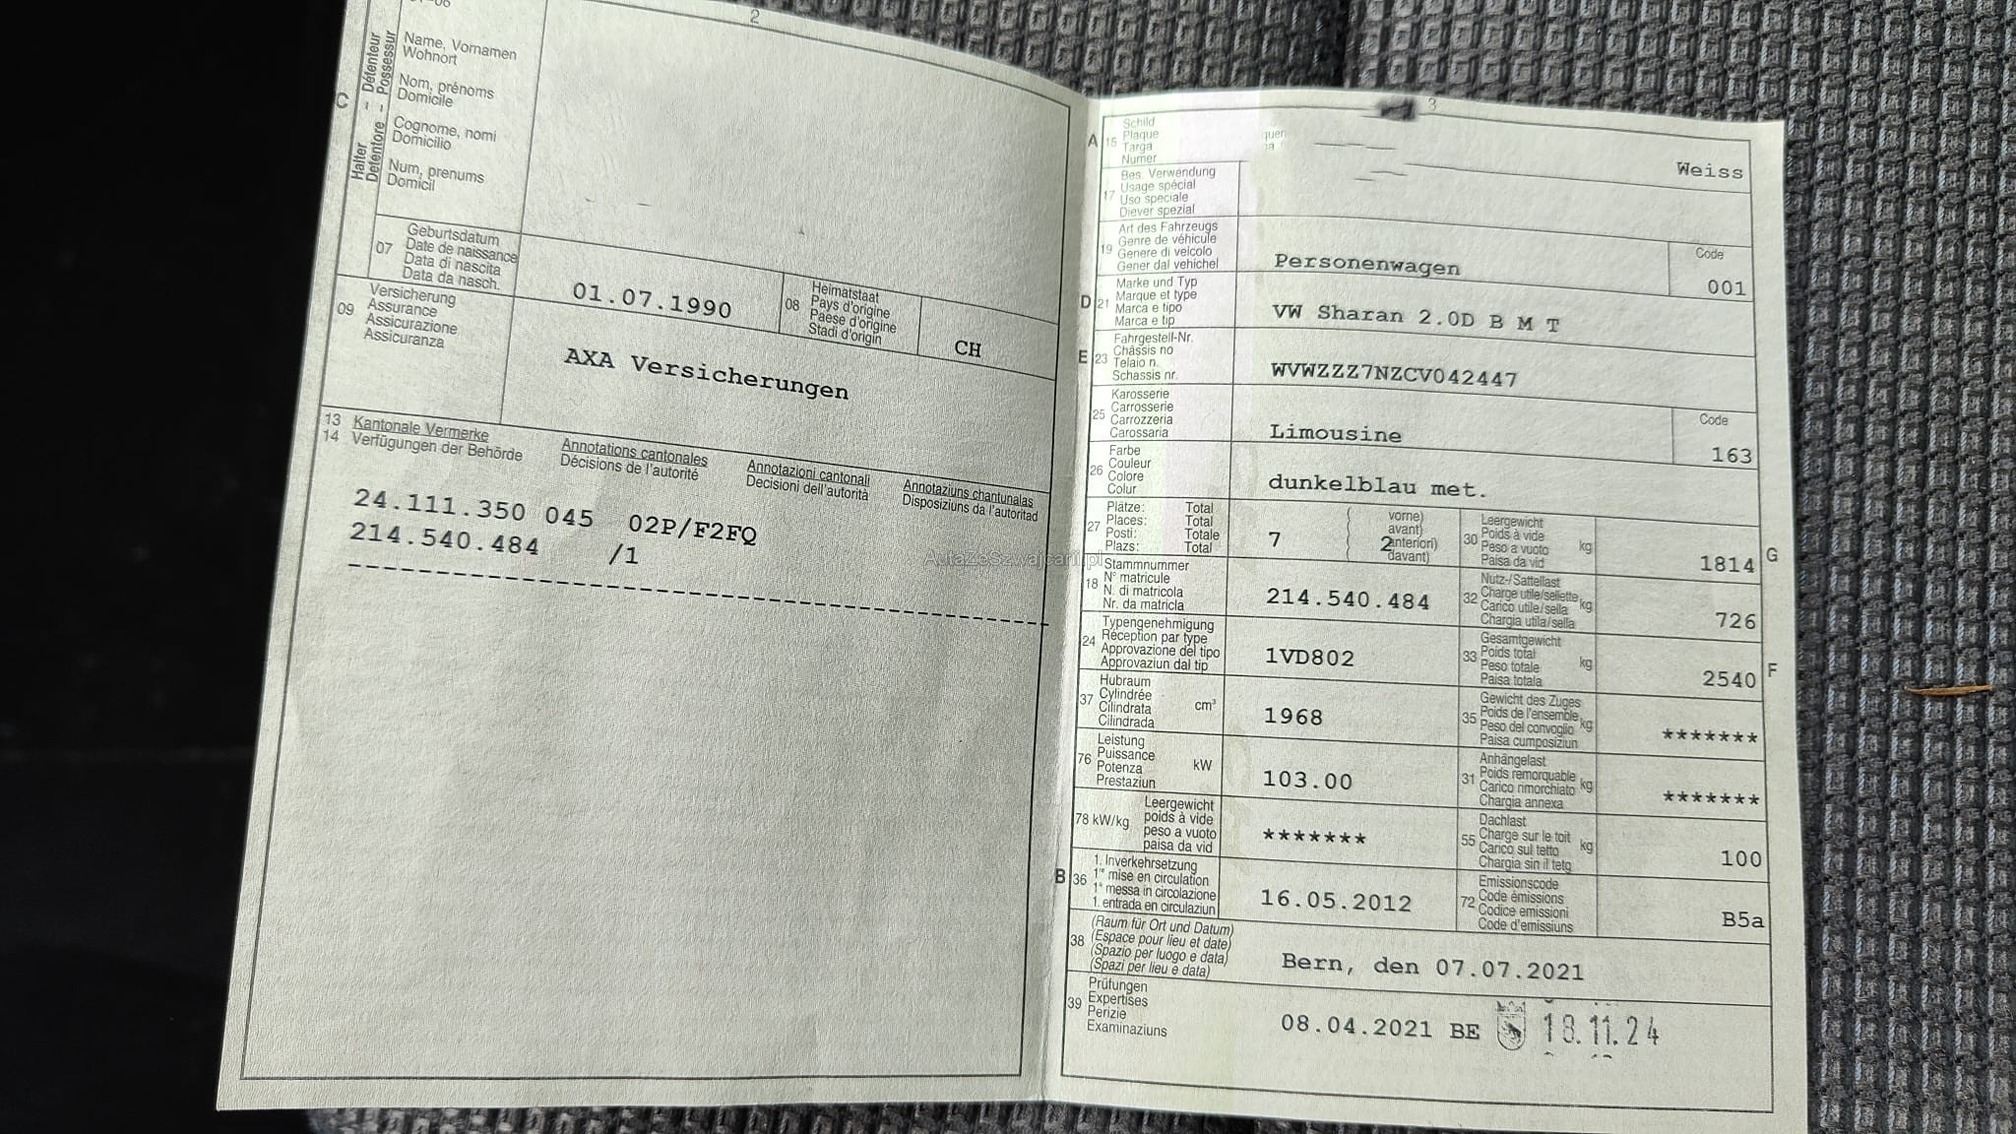 2
C
Halter – Détenteur
Detentore – Possessur
Name, Vornamen
Wohnort
Nom, prénoms
Domicile
Cognome, nomi
Domicilio
Num, prenums
Domicil
07
Geburtsdatum
Date de naissance
Data di nascita
Data da nasch.
01.07.1990
08
Heimatstaat
Pays d'origine
Paese d'origine
Stadi d'origin
CH
09
Versicherung
Assurance
Assicurazione
Assicuranza
AXA Versicherungen
13 Kantonale Vermerke
14 Verfügungen der Behörde
Annotations cantonales
Décisions de l'autorité
Annotazioni cantonali
Decisioni dell'autorità
Annotaziuns chantunalas
Disposiziuns da l'autoritad
24.111.350 045 02P/F2FQ
214.540.484 /1
AutaZeSzwajcarii.pl
3
A 15
Schild
Plaque
Targa
Numer
Weiss
17
Bes. Verwendung
Usage spécial
Uso speciale
Diever spezial
19
Art des Fahrzeugs
Genre de véhicule
Genere di veicolo
Gener dal vehichel
Personenwagen
Code
001
D 21
Marke und Typ
Marque et type
Marca e tipo
Marca e tip
VW Sharan 2.0D B M T
E 23
Fahrgestell-Nr.
Châssis no
Telaio n.
Schassis nr.
WVWZZZ7NZCV042447
25
Karosserie
Carrosserie
Carrozzeria
Carossaria
Limousine
Code
163
26
Farbe
Couleur
Colore
Colur
dunkelblau met.
27
Plätze: Total
Places: Total
Posti: Totale
Plazs: Total
7
vorne)
avant)
2 anteriori)
davant)
30
Leergewicht
Poids à vide
Peso a vuoto
Paisa da vid
kg
1814
G
18
Stammnummer
N° matricule
N. di matricola
Nr. da matricla
214.540.484
32
Nutz-/Sattellast
Charge utile/sellette
Carico utile/sella
Chargia utila/sella
kg
726
24
Typengenehmigung
Réception par type
Approvazione del tipo
Approvaziun dal tip
1VD802
33
Gesamtgewicht
Poids total
Peso totale
Paisa totala
kg
2540
F
37
Hubraum
Cylindrée
Cilindrata
Cilindrada
cm³
1968
35
Gewicht des Zuges
Poids de l'ensemble
Peso del convoglio
Paisa cumposiziun
kg
*******
76
Leistung
Puissance
Potenza
Prestaziun
kW
103.00
31
Anhängelast
Poids remorquable
Carico rimorchiato
Chargia annexa
kg
*******
78 kW/kg
Leergewicht
poids à vide
peso a vuoto
paisa da vid
*******
55
Dachlast
Charge sur le toit
Carico sul tetto
Chargia sin il tetg
kg
100
B 36
1. Inverkehrsetzung
1re mise en circulation
1a messa in circolazione
1. entrada en circulaziun
16.05.2012
72
Emissionscode
Code émissions
Codice emissioni
Code d'emissiuns
B5a
38
(Raum für Ort und Datum)
(Espace pour lieu et date)
(Spazio per luogo e data)
(Spazi per lieu e data)
Bern, den 07.07.2021
39
Prüfungen
Expertises
Perizie
Examinaziuns
08.04.2021 BE
18.11.24